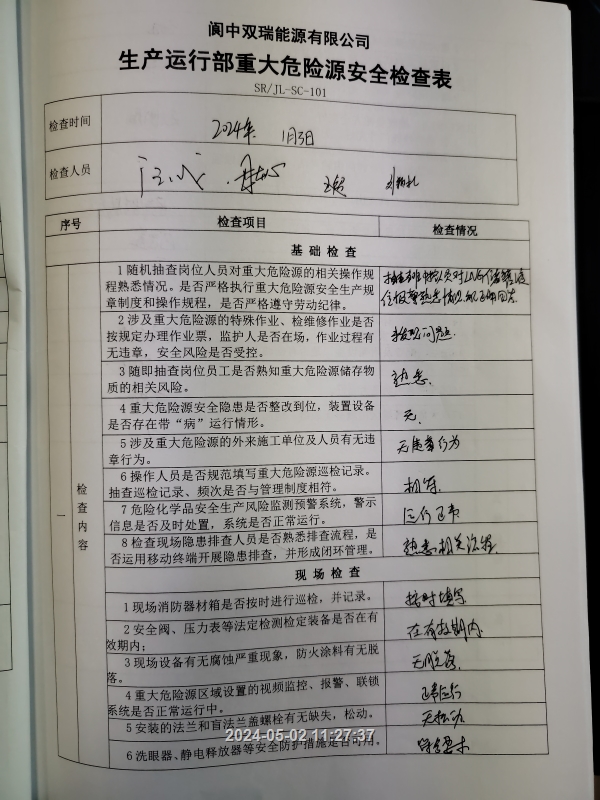 阆中双瑞能源有限公司
生产运行部重大危险源安全检查表
SR/JL-SC-101
检查时间 2024年 1月3日
检查人员
序号 检查项目 检查情况
基础检查
1随机抽查岗位人员对重大危险源的相关操作规
程熟悉情况。是否严格执行重大危险源安全生产规
章制度和操作规程，是否严格遵守劳动纪律。
2涉及重大危险源的特殊作业、检维修作业是否
按规定办理作业票，监护人是否在场，作业过程有
无违章，安全风险是否受控。
未发现问题
3随即抽查岗位员工是否熟知重大危险源储存物
质的相关风险。
熟悉.
4重大危险源安全隐患是否整改到位，装置设备
是否存在带“病”运行情形。
无.
5涉及重大危险源的外来施工单位及人员有无违
章行为。
无违章行为
6操作人员是否规范填写重大危险源巡检记录。
抽查巡检记录、频次是否与管理制度相符。
相符.
7危险化学品安全生产风险监测预警系统，警示
信息是否及时处置，系统是否正常运行。
运行正常
8检查现场隐患排查人员是否熟悉排查流程，是
否运用移动终端开展隐患排查，并形成闭环管理。
熟悉相关流程
一
检查内容
现场检查
1现场消防器材箱是否按时进行巡检，并记录。
按时填写
2安全阀、压力表等法定检测检定装备是否在有
效期内；
在有效期内
3现场设备有无腐蚀严重现象，防火涂料有无脱
落。
无脱落
4重大危险源区域设置的视频监控、报警、联锁
系统是否正常运行中。
正常运行
5安装的法兰和盲法兰盖螺栓有无缺失，松动。
无松动
6洗眼器、静电释放器等安全防护措施是否可用。
符合要求
2024-05-02 11:27:37